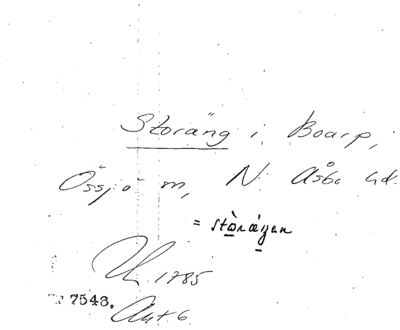 Storäng i Boarp,
Össjö m, N. Åsbo hd.
= stòráŋen
1785
7543. Akt 6